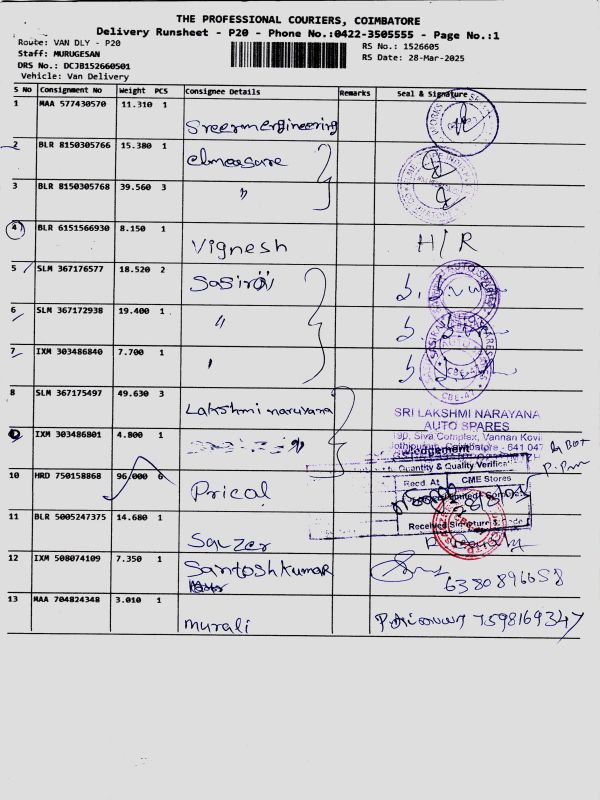 THE PROFESSIONAL COURIERS, COIMBATORE
Delivery Runsheet - P20 - Phone No.:0422-3505555 - Page No.:1
Route: VAN DLY - P20
Staff: MURUGESAN
DRS No.: DCJB152660501
Vehicle: Van Delivery
RS No.: 1526605
RS Date: 28-Mar-2025
S No Consignment No Weight PCS Consignee Details Remarks Seal & Signature
1 MAA 577430570 11.310 1 Sreeram Engineering
2 BLR 8150305766 15.380 1 elmeasure
3 BLR 8150305768 39.560 3 "
4 BLR 6151566930 8.150 1 Vignesh H/R
5 SLM 367176577 18.520 2 Sasirai
6 SLM 367172938 19.400 1 "
7 IXM 303486840 7.700 1 "
8 SLM 367175497 49.630 3 Lakshmi naruyana
SRI LAKSHMI NARAYANA
AUTO SPARES
Siva Complex, Vannan Kovil
Coimbatore - 641 047
9 IXM 303486801 4.800 1 "
Quantity & Quality Verific
Recd. At CME Stores
10 HRD 750158868 96.000 6 Prical
11 BLR 5005247375 14.680 1 Sauzer
12 IXM 508074109 7.350 1 Santosh kumar 6380896658
13 MAA 704824348 3.010 1 murali 7598169347